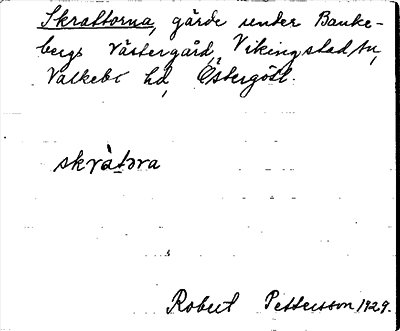 Skrattorna, gärde under Banke-
bergs Västergård, Vikingstad sn,
Valkebo hd, Östergötl.
skråtɔra
Robert Pettersson 1929.